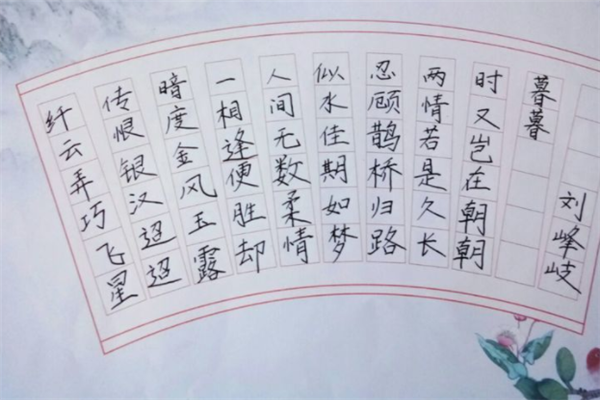 纤云弄巧飞星
传恨银汉迢迢
暗度金风玉露
一相逢便胜却
人间无数柔情
似水佳期如梦
忍顾鹊桥归路
两情若是久长
时又岂在朝朝
暮暮
刘峰岐